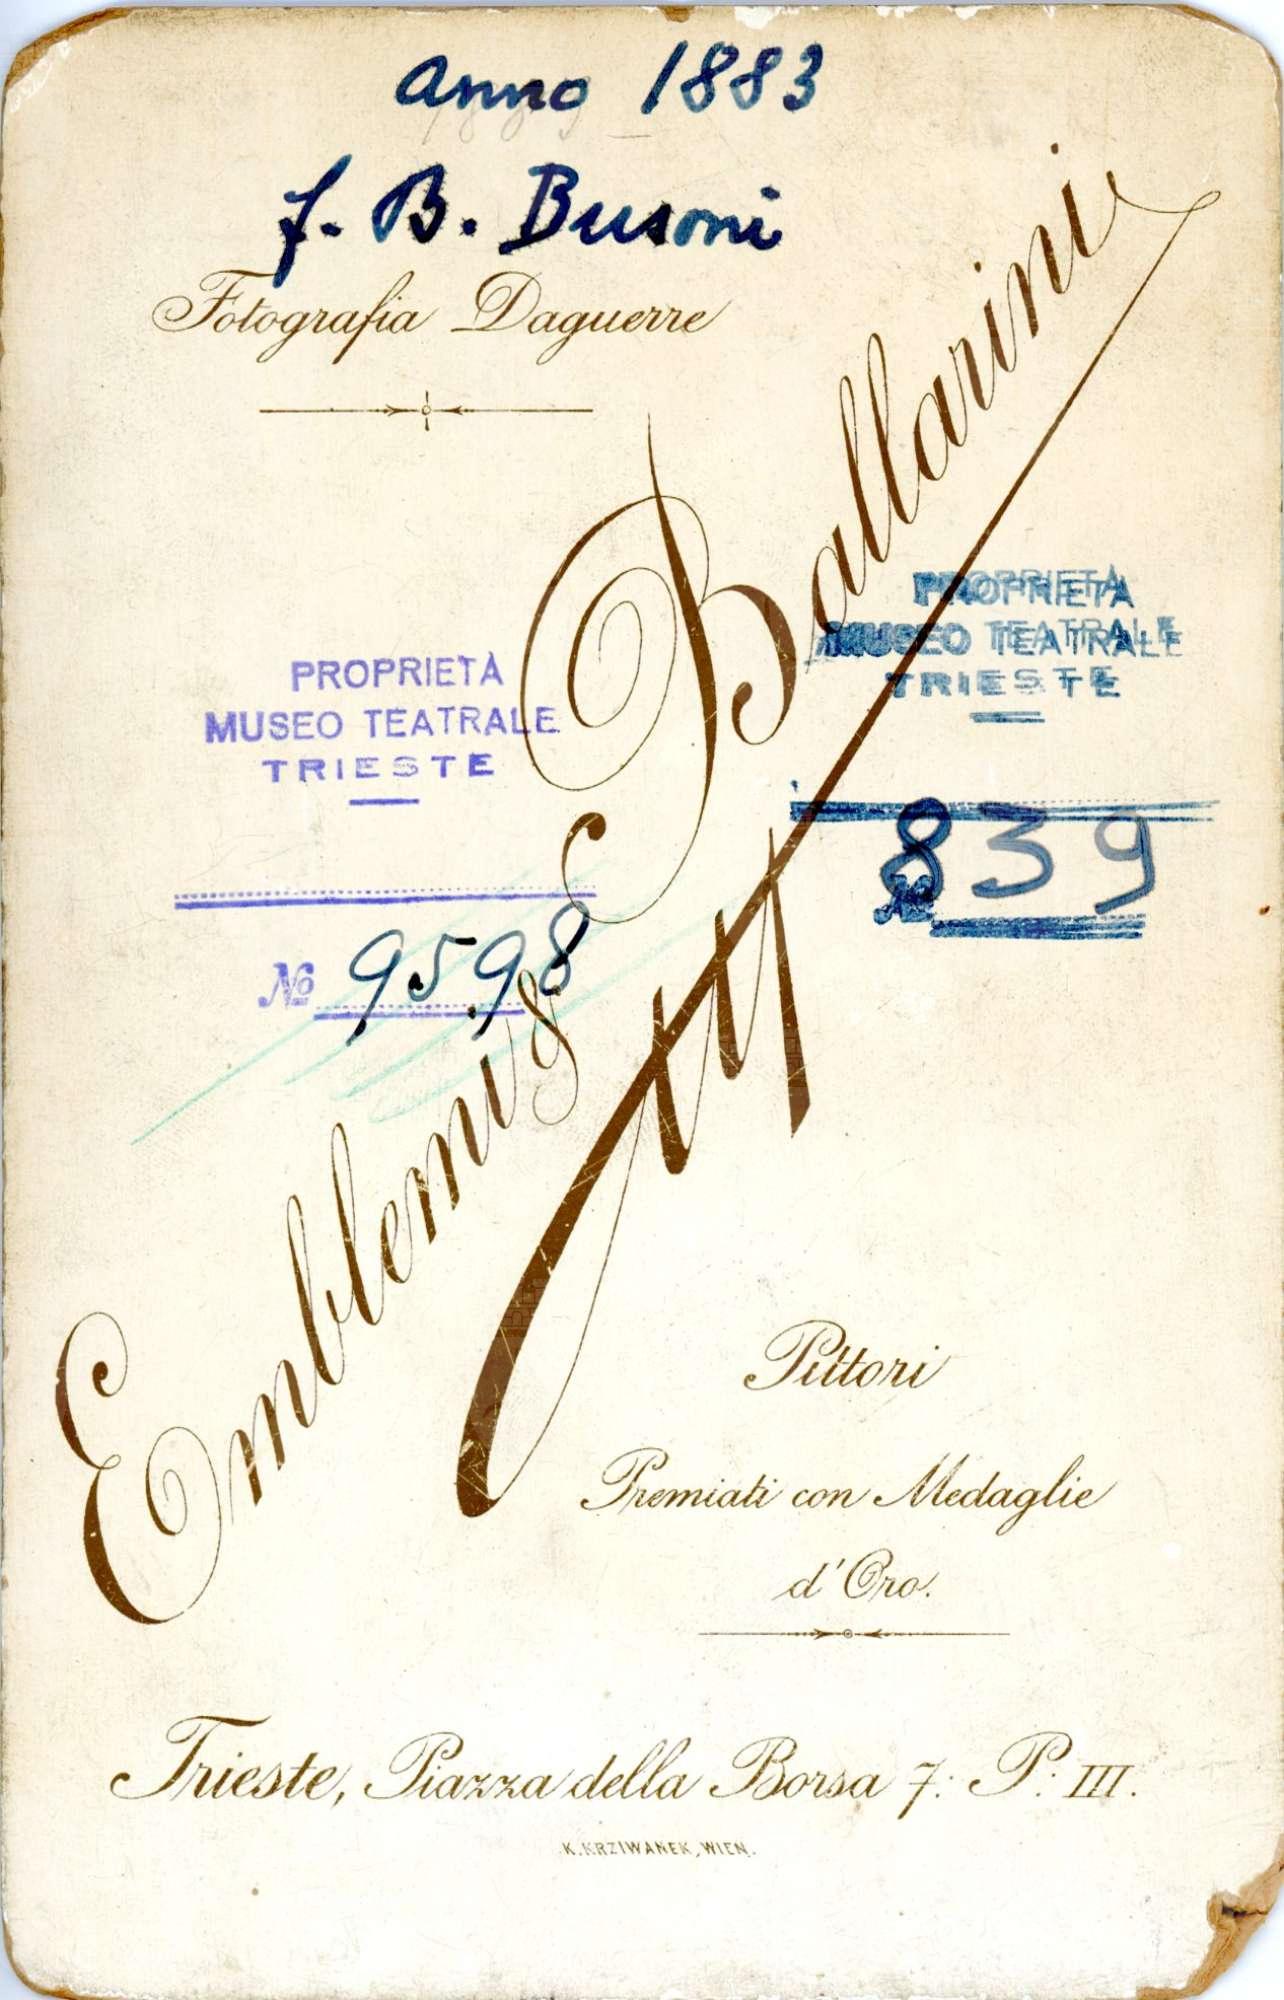 anno 1883
f. B. Busoni
Fotografia Daguerre
Emblemi & Ballarini
PROPRIETÀ
MUSEO TEATRALE
TRIESTE
№ 9598
PROPRIETÀ
MUSEO TEATRALE
TRIESTE
839
№
Pittori
Premiati con Medaglie
d'Oro.
Trieste, Piazza della Borsa 7: P: III.
K. KRZIWANEK, WIEN.